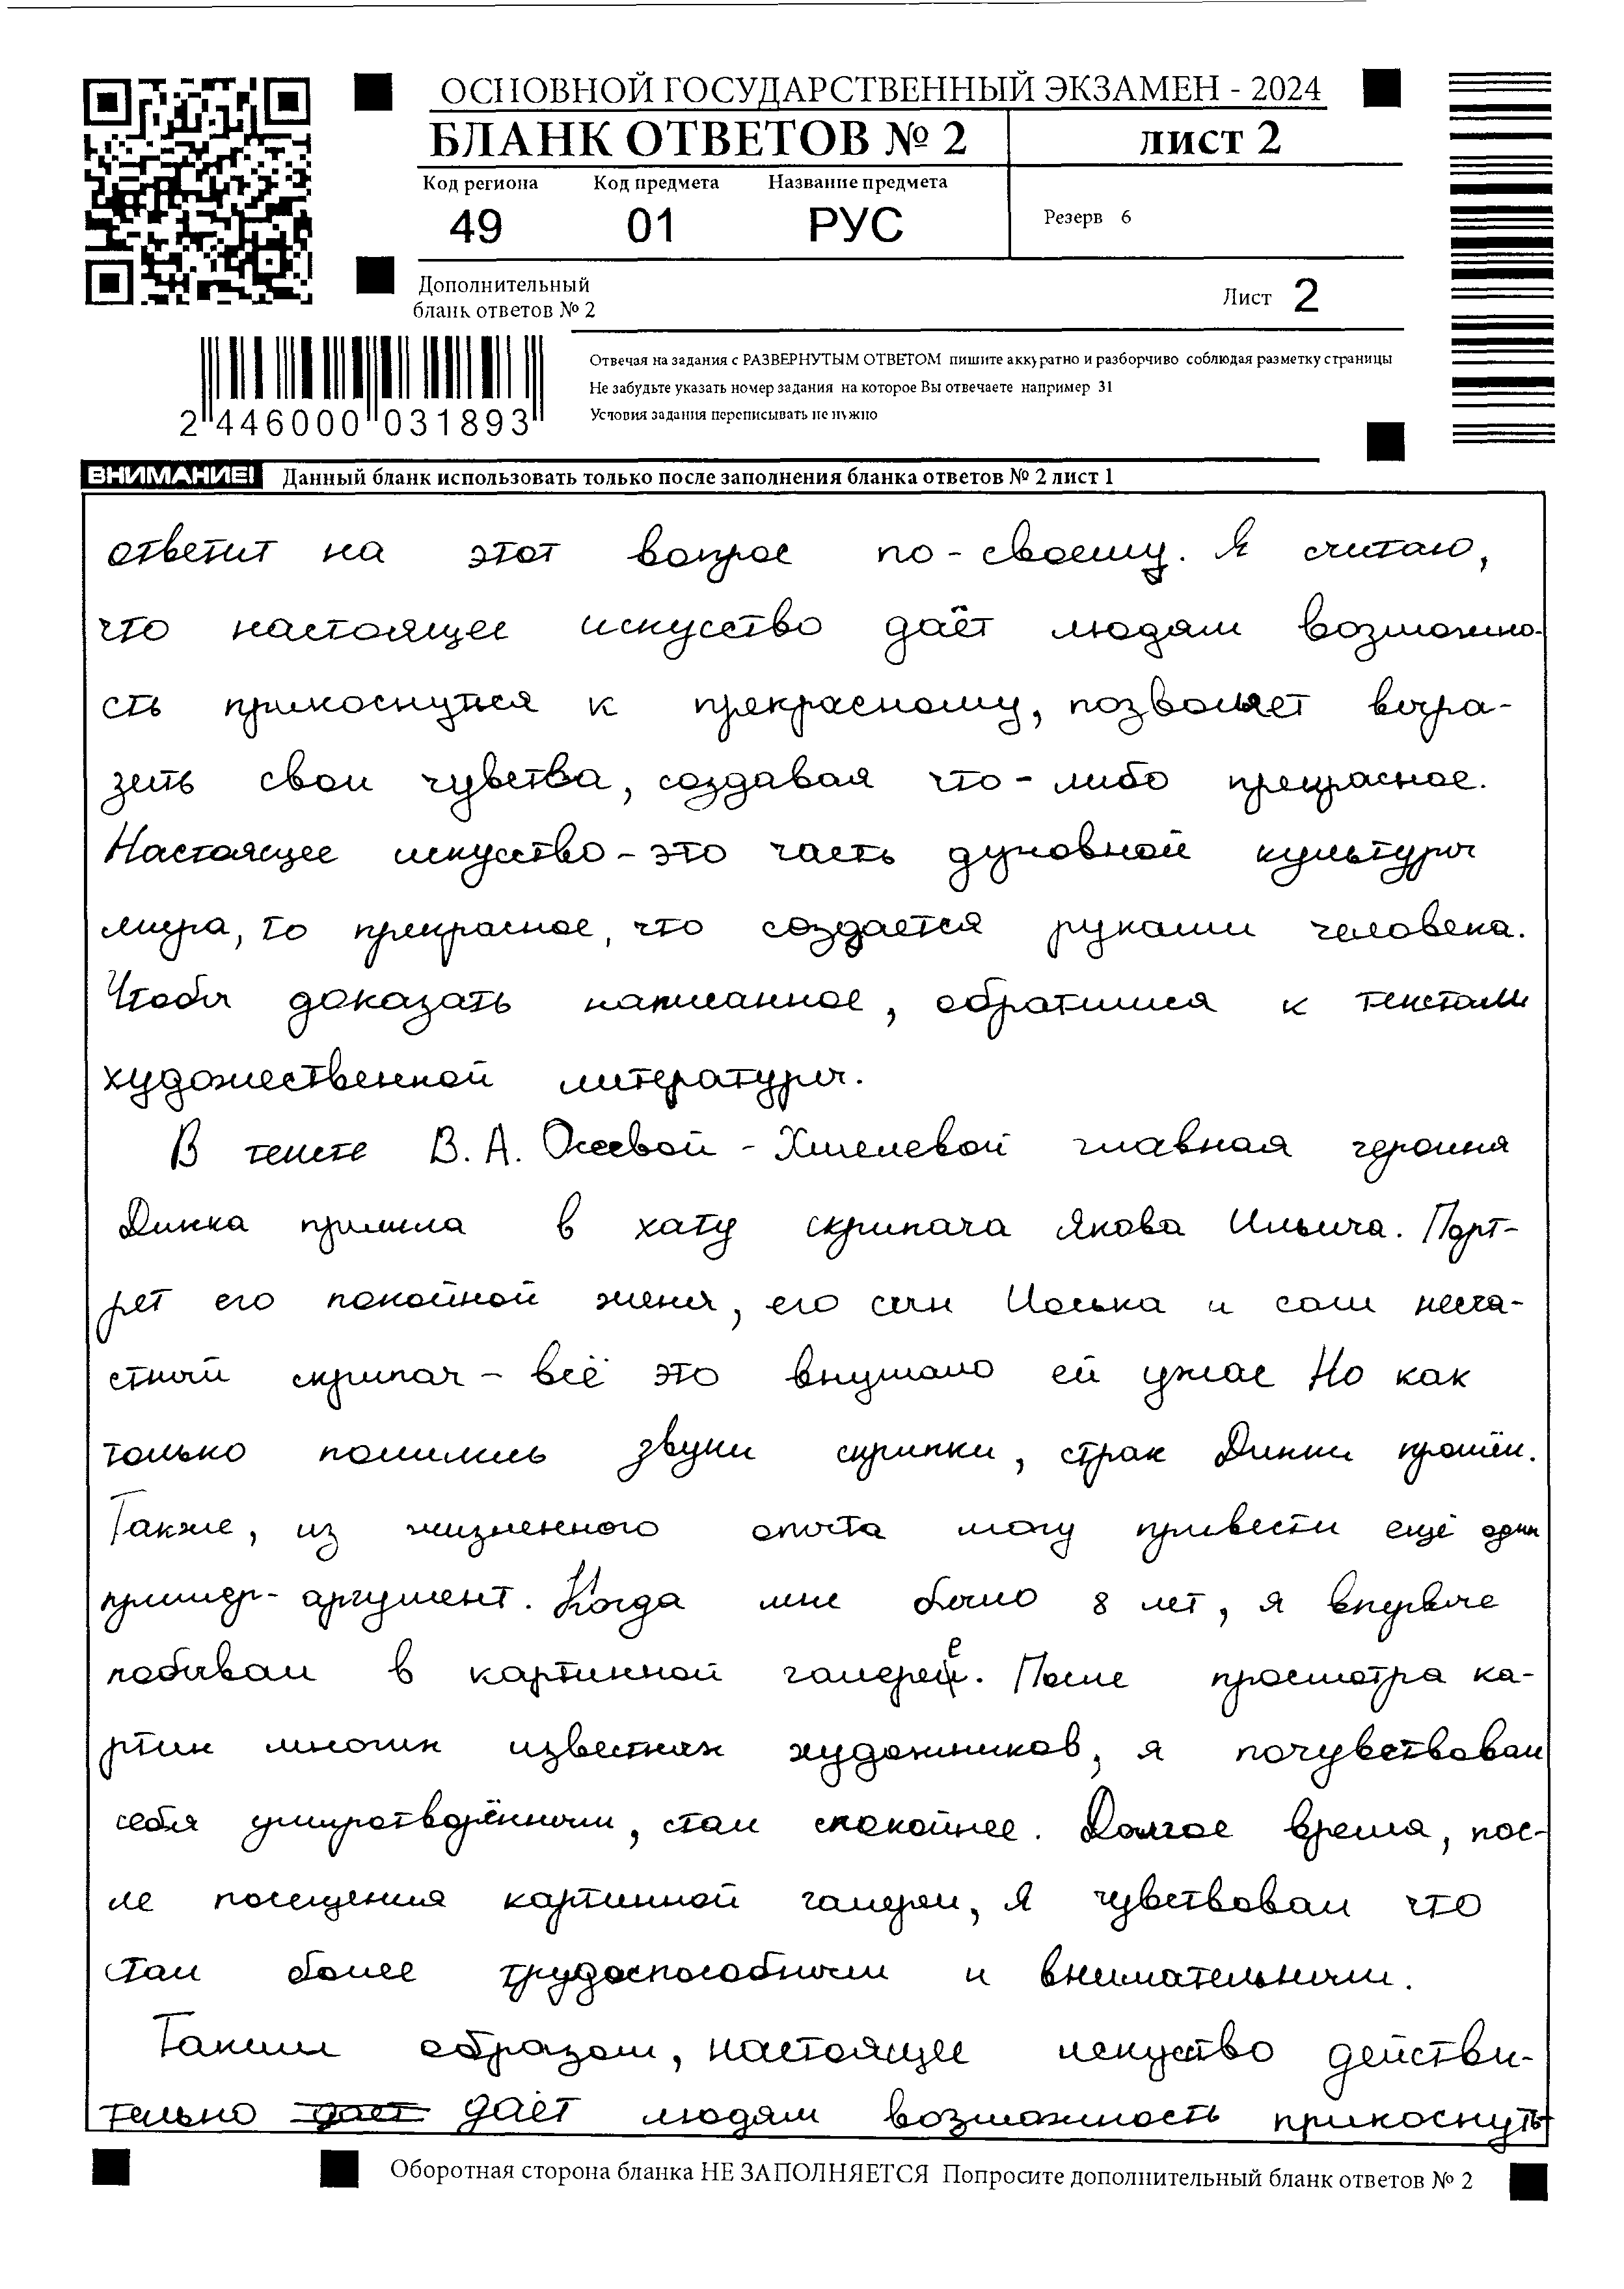 ОСНОВНОЙ ГОСУДАРСТВЕННЫЙ ЭКЗАМЕН - 2024
БЛАНК ОТВЕТОВ № 2 лист 2
Код региона Код предмета Название предмета
49 01 РУС Резерв 6
Дополнительный
бланк ответов № 2 Лист 2
Отвечая на задания с РАЗВЕРНУТЫМ ОТВЕТОМ пишите аккуратно и разборчиво соблюдая разметку страницы
Не забудьте указать номер задания на которое Вы отвечаете например 31
Условия задания переписывать не нужно
2 446000 031893
ВНИМАНИЕ! Данный бланк использовать только после заполнения бланка ответов № 2 лист 1
ответит на этот вопрос по-своему. Я считаю,
что настоящее искусство даёт людям возможно-
сть прикоснуться к прекрасному, позволяет выра-
зить свои чувства, создавая что-либо прекрасное.
Настоящее искусство - это часть духовной культуры
мира, то прекрасное, что создается руками человека.
Чтобы доказать написанное, обратимся к текстам
художественной литературы.
В тексте В.А. Осеевой-Хмелевой главная героиня
Динка пришла в хату скрипача Якова Ильича. Порт-
рет его покойной жены, его сын Иоська и сам несча-
стный скрипач - всё это внушало ей ужас Но как
только полились звуки скрипки, страх Динки прошёл.
Также, из жизненного опыта могу привести ещё один
пример-аргумент. Когда мне было 8 лет, я впервые
побывал в картинной галерее. После просмотра ка-
ртин многих известных художников, я почувствовал
себя умиротворённым, стал спокойнее. Долгое время, пос-
ле посещения картинной галереи, я чувствовал что
стал более трудоспособным и внимательным.
Таким образом, настоящее искуство действи-
тельно дает даёт людям возможность прикоснуть
Оборотная сторона бланка НЕ ЗАПОЛНЯЕТСЯ Попросите дополнительный бланк ответов № 2